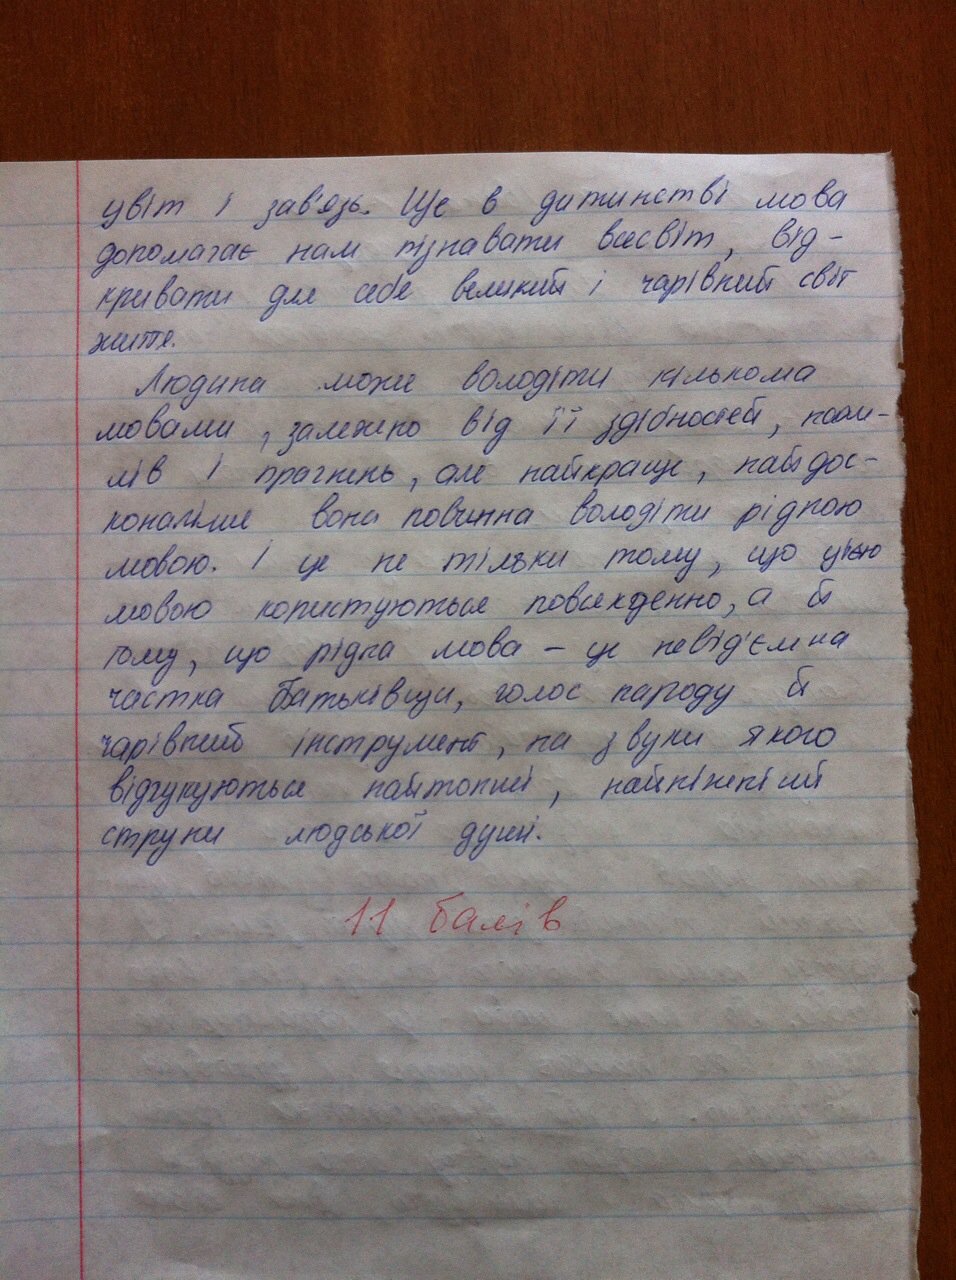 цвіт і зав'язь. Ще в дитинстві мова
допомагає нам пізнавати всесвіт, від-
кривати для себе великий і чарівний світ
життя.
Людина може володіти кількома
мовами, залежно від її здібностей, нахи-
лів і прагнень, але найкраще, найдос-
коналіше вона повинна володіти рідною
мовою. І це не тільки тому, що цією
мовою користуються повсякденно, а й
тому, що рідна мова – це невід'ємна
частка Батьківщи, голос народу й
чарівний інструмент, на звуки якого
відгукуються найтонші, найніжніші
струни людської душі.
11 балів